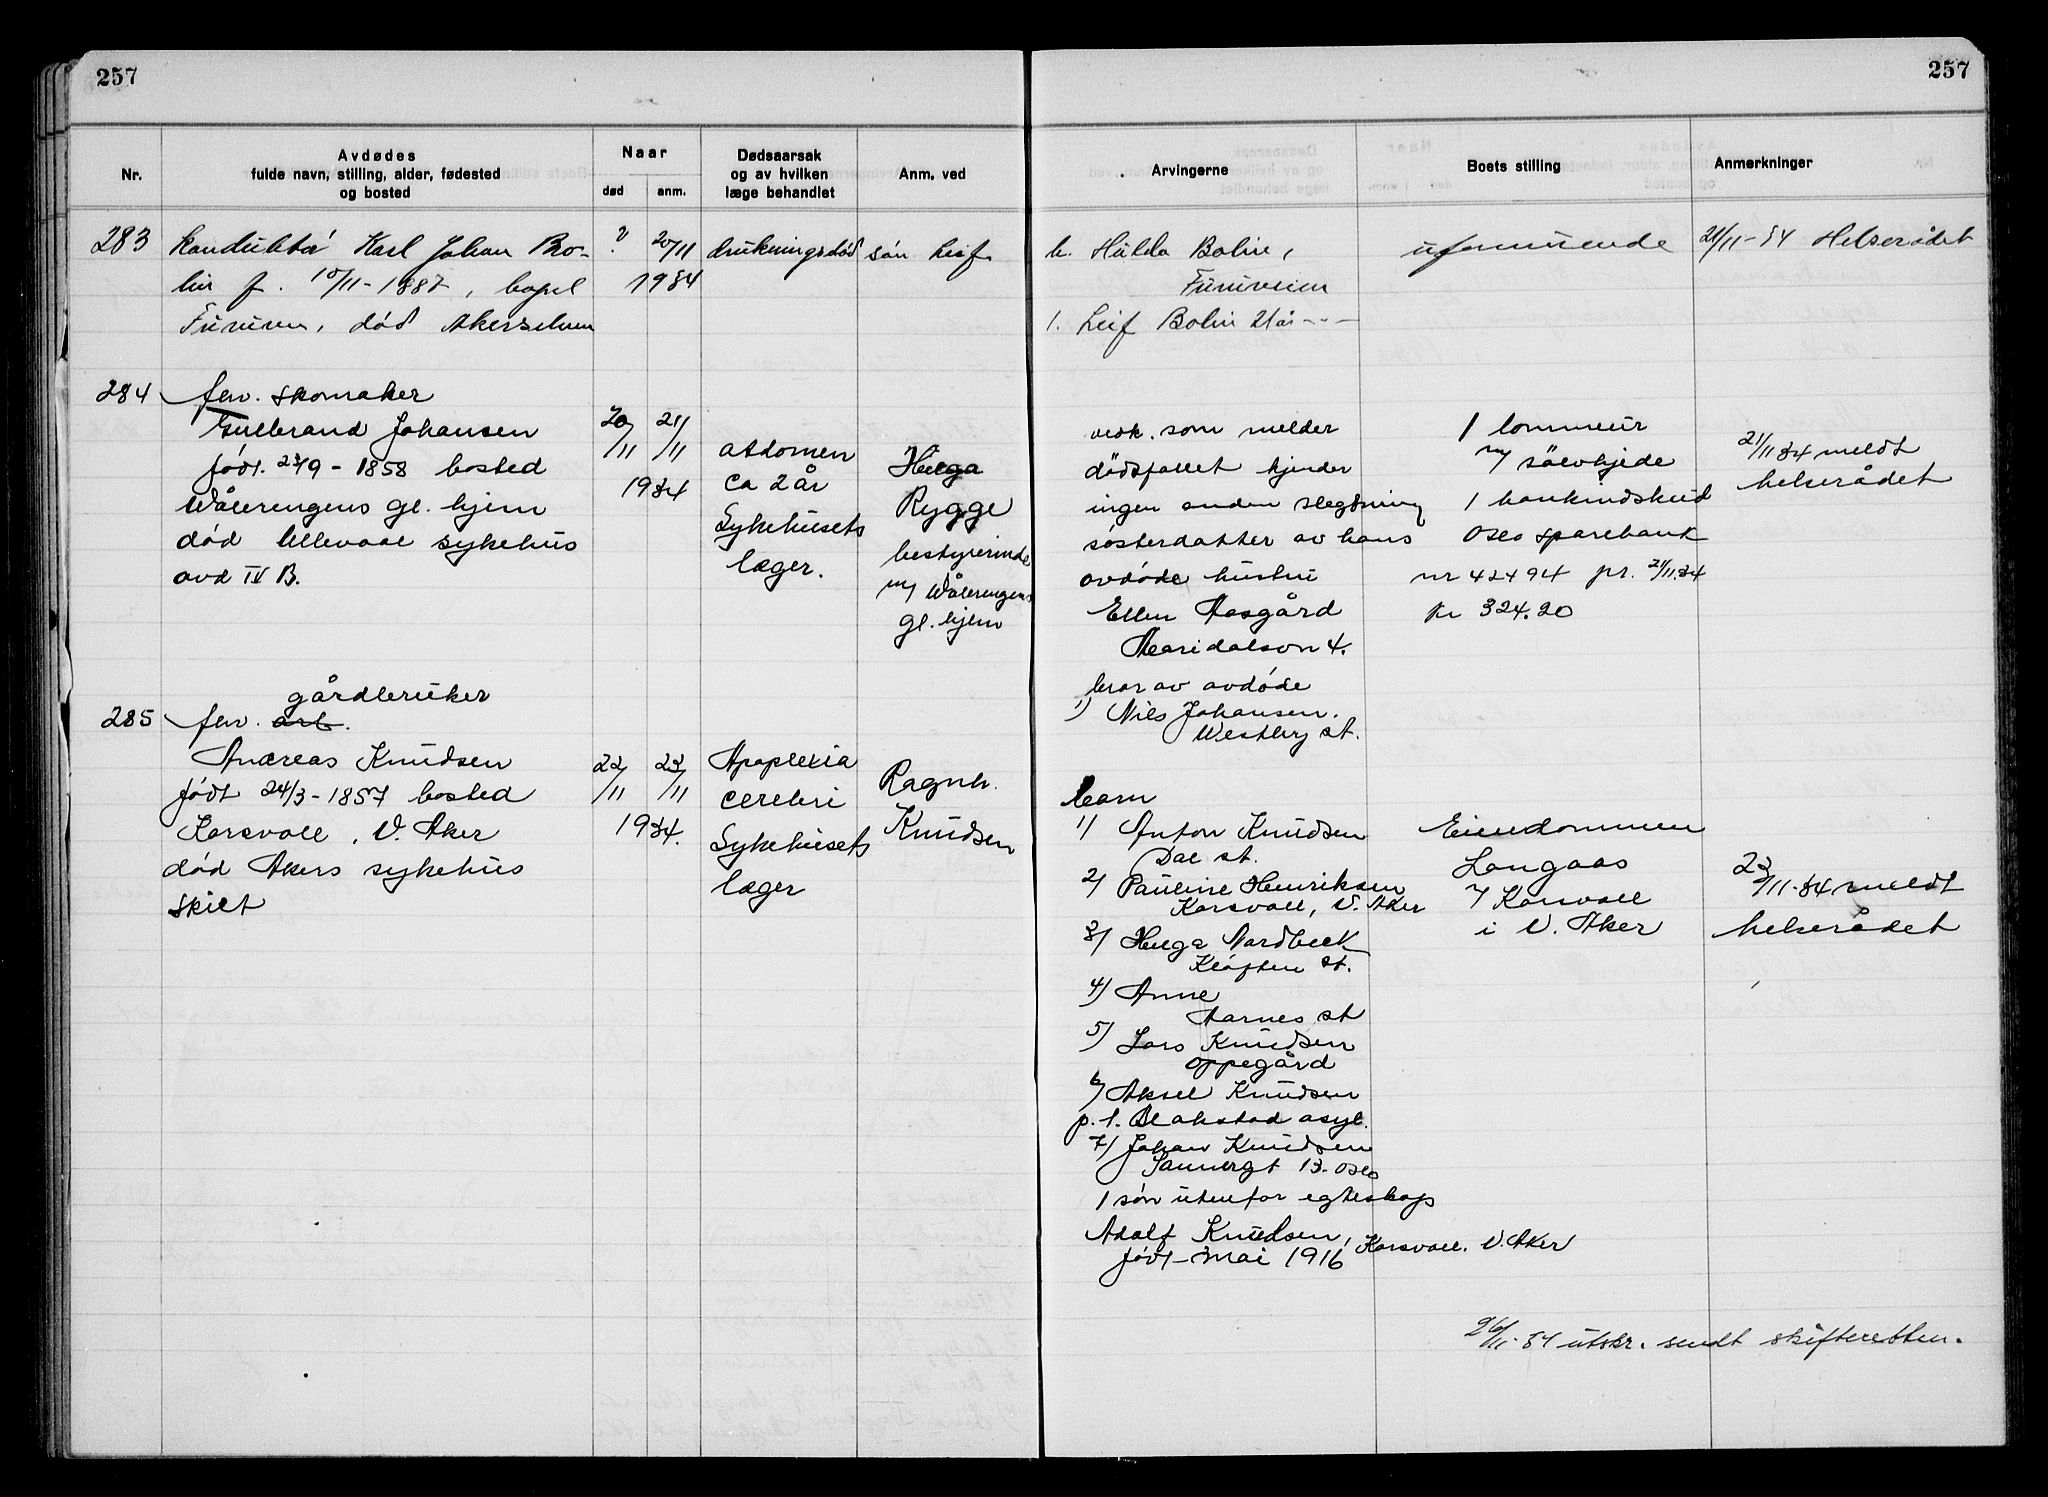 257
257
Nr.
Avdødes
fulde navn, stilling, alder, fødested
og bosted
Naar
død
anm.
Dødsaarsak
og av hvilken
læge behandlet
Anm. ved
Arvingerne
Boets stilling
Anmerkninger
283
konduktør Karl Johan Bo-
lin f. 10/11-1887, bopel
død Akerselven
?
20/11
1934
drukningsdød
søn Leif
h. Hulda Bolin,
Furuveien
1. Leif Bolin 21 år -"-
uformuende
21/11-34 Helserådet
284
fhv. skomaker
Gulbrand Johansen
født. 23/9 - 1858 bosted
Vålerengens gl. hjem
død Ullevaal sykehus
avd IV B.
20/11
21/11
1934
ca 2 år
Sykehusets
læger.
Helga
Rygge
bestyrerinde
v/ Vålerengens
gl. hjem
vedk. som melder
dödsfallet kjender
ingen anden slegtning
søsterdatter av hans
avdøde hustru
Ellen Aasgård
Maridalsvn 4.
bror av avdøde
1) Nils Johansen.
Westby st.
1 lommeur
m/ sölvkjede
1 bankindskud
Oslo Sparebank
nr 42494 pr. 21/11.34
kr 324.20
21/11 34 meldt
helserådet
285
gårdbruker
fhv. arb.
Andreas Knudsen
født 24/3 - 1857 bosted
Korsvoll, V. Aker
død Akers sykehus
skilt
22/11
23/11
1934.
Apoplexia
cerebri
Sykehusets
læger
Ragnh.
Knudsen
barn
1) Anton Knudsen
Dal st.
2) Pauline Henriksen
Korsvoll, V. Aker
3) Helga Nordbeck
Kløften st.
4) Anne
Aarnes st
5) Lars Knudsen
Oppegård
6) Aksel Knudsen
p. t. Blakstad asyl.
7) Johan Knudsen
Sannergt 13. Oslo
1 søn utenfor egteskap
Adolf Knudsen, Korsvoll. V. Aker
født - mai 1916
Eiendommen
Langaas
7 Korsvoll
i V. Aker
23/11-34 meldt
helserådet
26/11-34 utskr. sendt skifteretten.